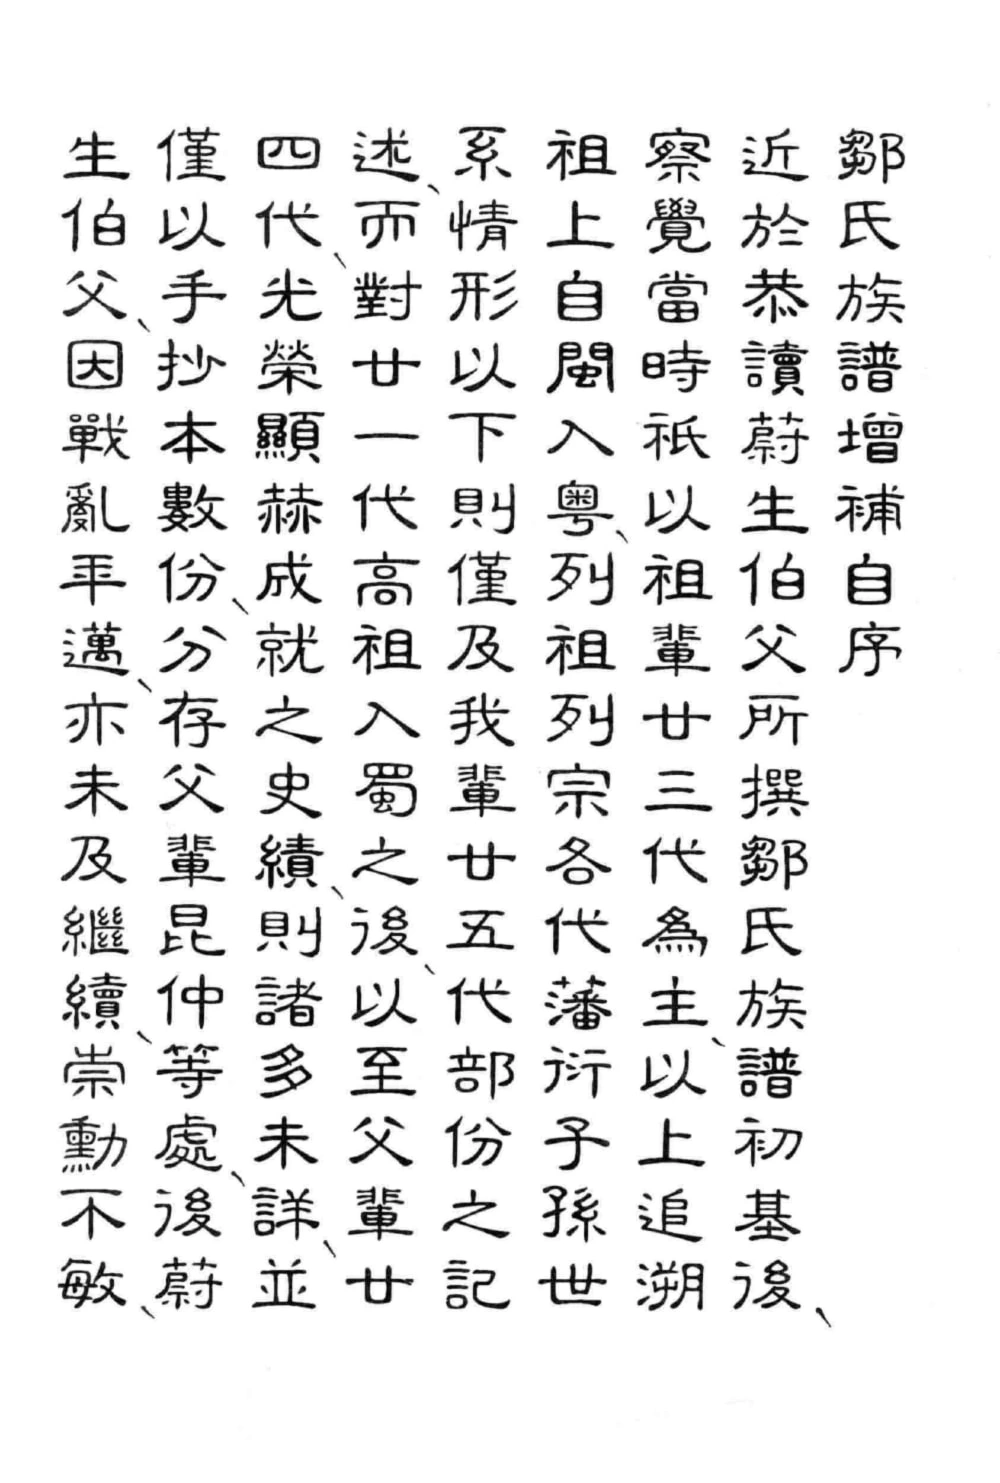 鄒氏族譜增補自序
近於恭讀蔚生伯父所撰鄒氏族譜初基後、
察覺當時祇以祖輩廿三代為主、以上追溯
祖上自閩入粵、列祖列宗各代藩衍子孫世
系情形以下則僅及我輩廿五代部份之記
述、而對廿一代高祖入蜀之後、以至父輩廿
四代、光榮顯赫成就之史績、則諸多未詳、並
僅以手抄本數份、分存父輩昆仲等處、後蔚
生伯父、因戰亂平邁、亦未及繼續、崇勳不敏、